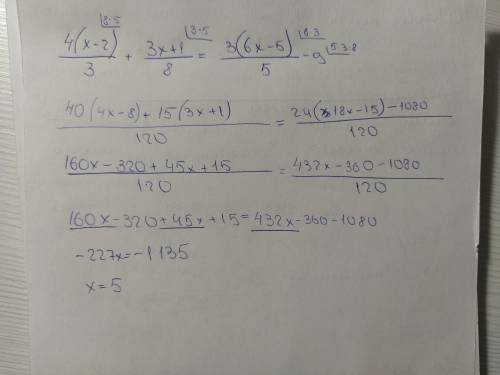 4(x-2)/3 |8·5 + 3x+1/8 |3·5 = 3(6x-5)/5 |8·3 - 9 |5·3·8
40(4x-8)+15(3x+1)/120 = 24(18x-15)-1080/120
160x-320+45x+15/120 = 432x-360-1080/120
160x-320+45x+15=432x-360-1080
-227x=-1135
x=5